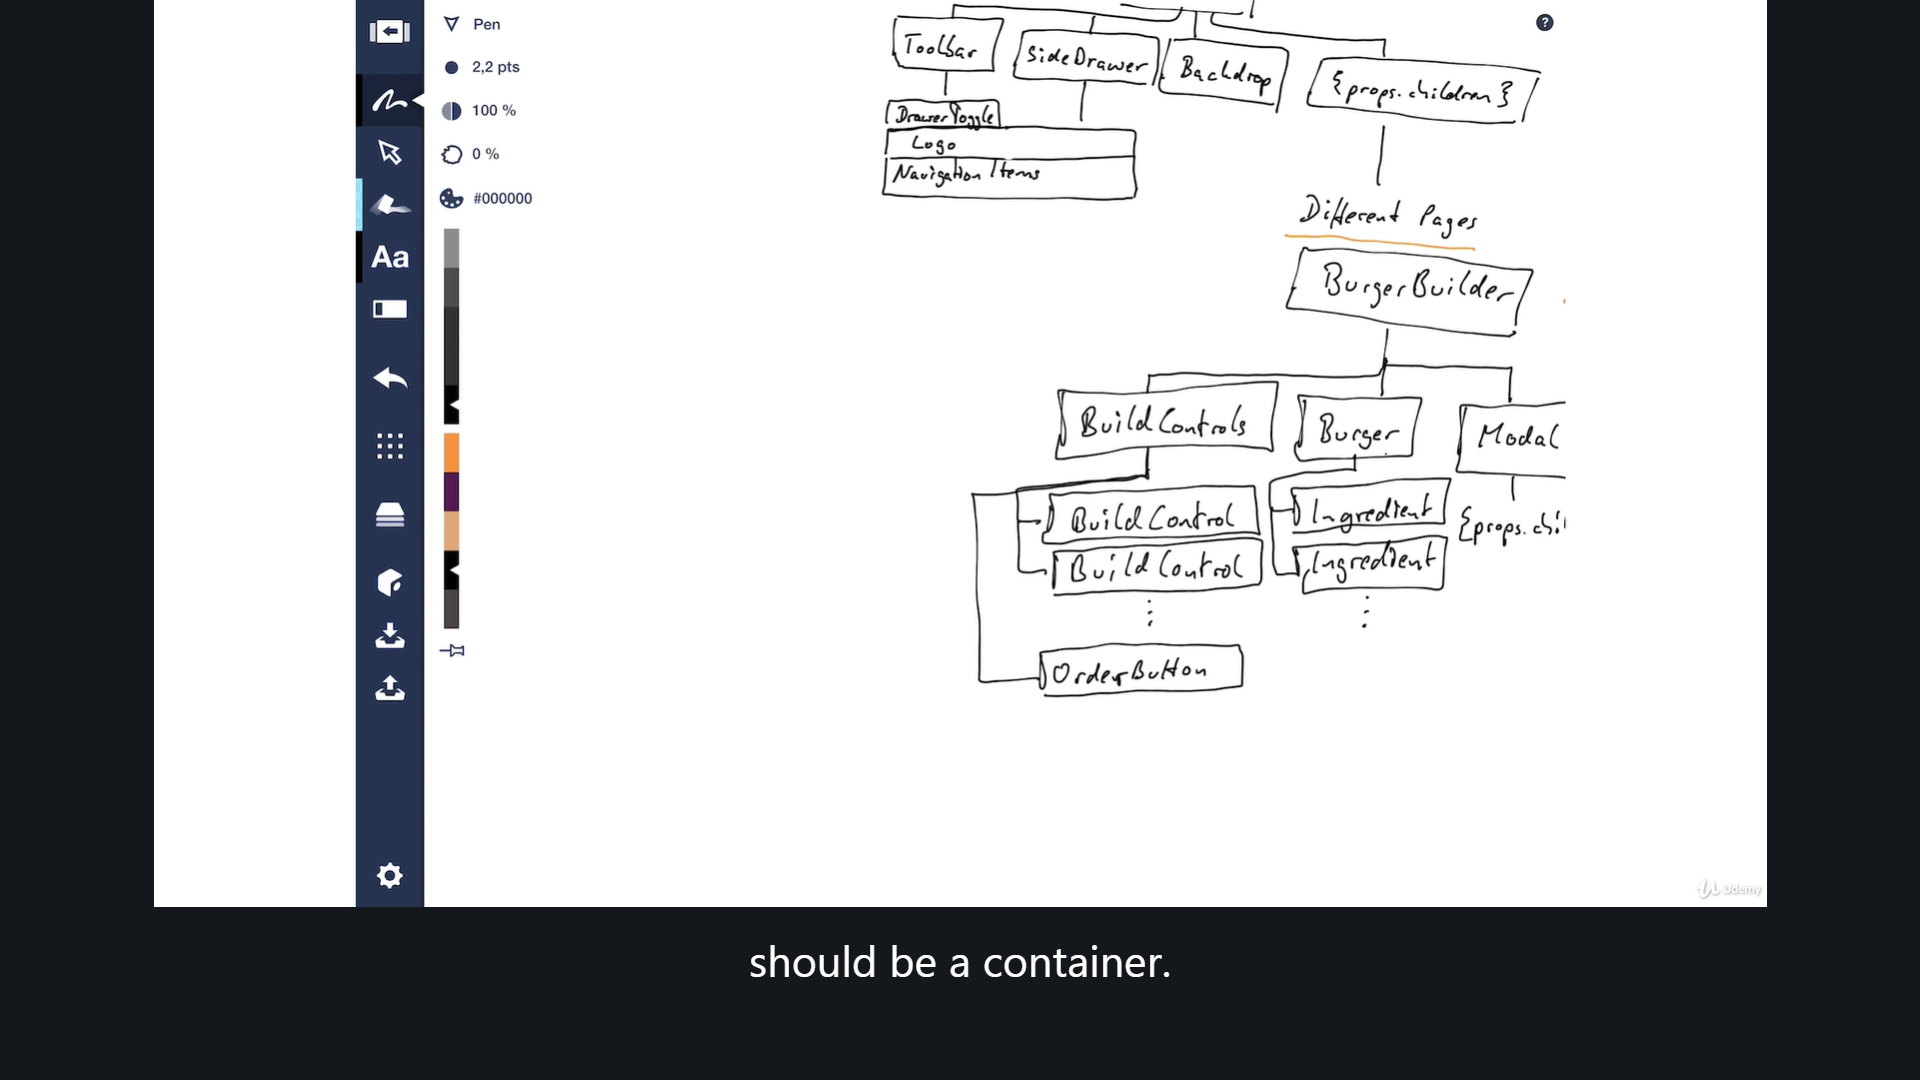 Pen
2,2 pts
100 %
0 %
#000000
Aa
?
Toolbar
SideDrawer
Backdrop
{props.children}
DrawerToggle
Logo
Navigation Items
Different Pages
BurgerBuilder
BuildControls
Burger
Modal
BuildControl
Ingredient
{props.chi
BuildControl
Ingredient
OrderButton
Udemy
should be a container.